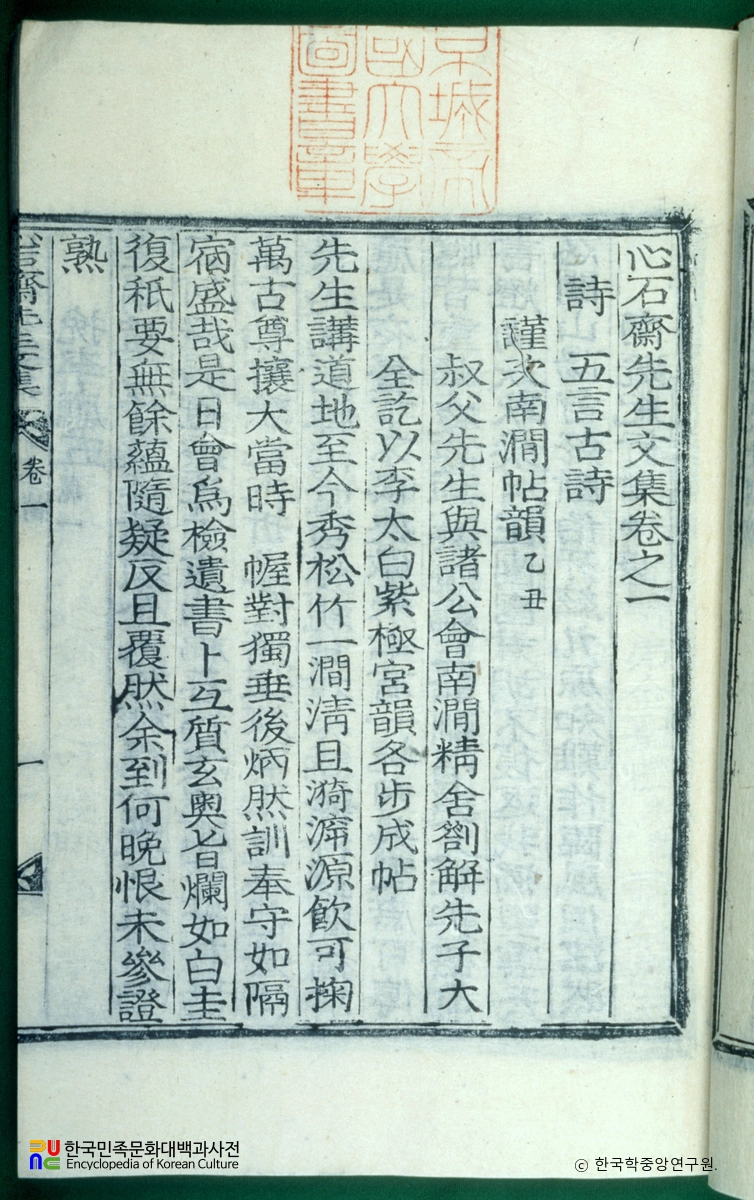 心石齋先生文集卷之一
詩 五言古詩
謹次南澗帖韻 乙丑
叔父先生與諸公會南澗精舍劄解先子大
全訖以李太白紫極宮韻各步成帖
先生講道地至今秀松竹一澗淸且漪源飮可掬
萬古尊攘大當時 幄對獨垂後炳然訓奉守如隔
宿盛哉是日會爲檢遺書卜互質玄奧旨爛如白圭
復秖要無餘蘊隨疑反且覆然余到何晩恨未參證
熟
心石齋先生文集 卷一 一
京城帝
國大學
圖書章
한국민족문화대백과사전
Encyclopedia of Korean Culture
ⓒ 한국학중앙연구원.